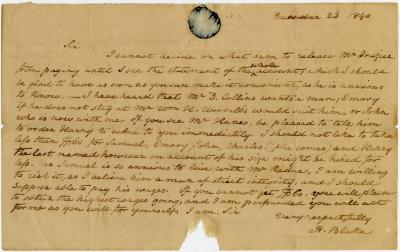 December 23. 1840
Sir
I cannot decide on what sum to release Mr Frazier
from paying until I see the statement of the whole account, which I should
be glad to have as soon as you can make it convenient, as he is anxious
to know. — I have heard that Mr D. Collins wants a man; Emory
if he does not stay at Mr Wm H. would suit him, or John
who is now with me. If you see Mr Hanes, be pleased to tell him
to order Harry to come to you immediately. I should not like to take
less than $60 for Samuel, Emory, John, Charles (if he comes) and Henry
the last named however on account of his size might be hired for
less. As Samuel is so anxious to live with Mr , I am willing
to risk it, as I believe him a man of strict integrity, and I should
suppose able to pay his wages. If you cannot get $60. you will please
to obtain the highest wages going, and I am persuaded you will act
for me as you will for yourself. I am. Sir
very respectfully
A. Blake